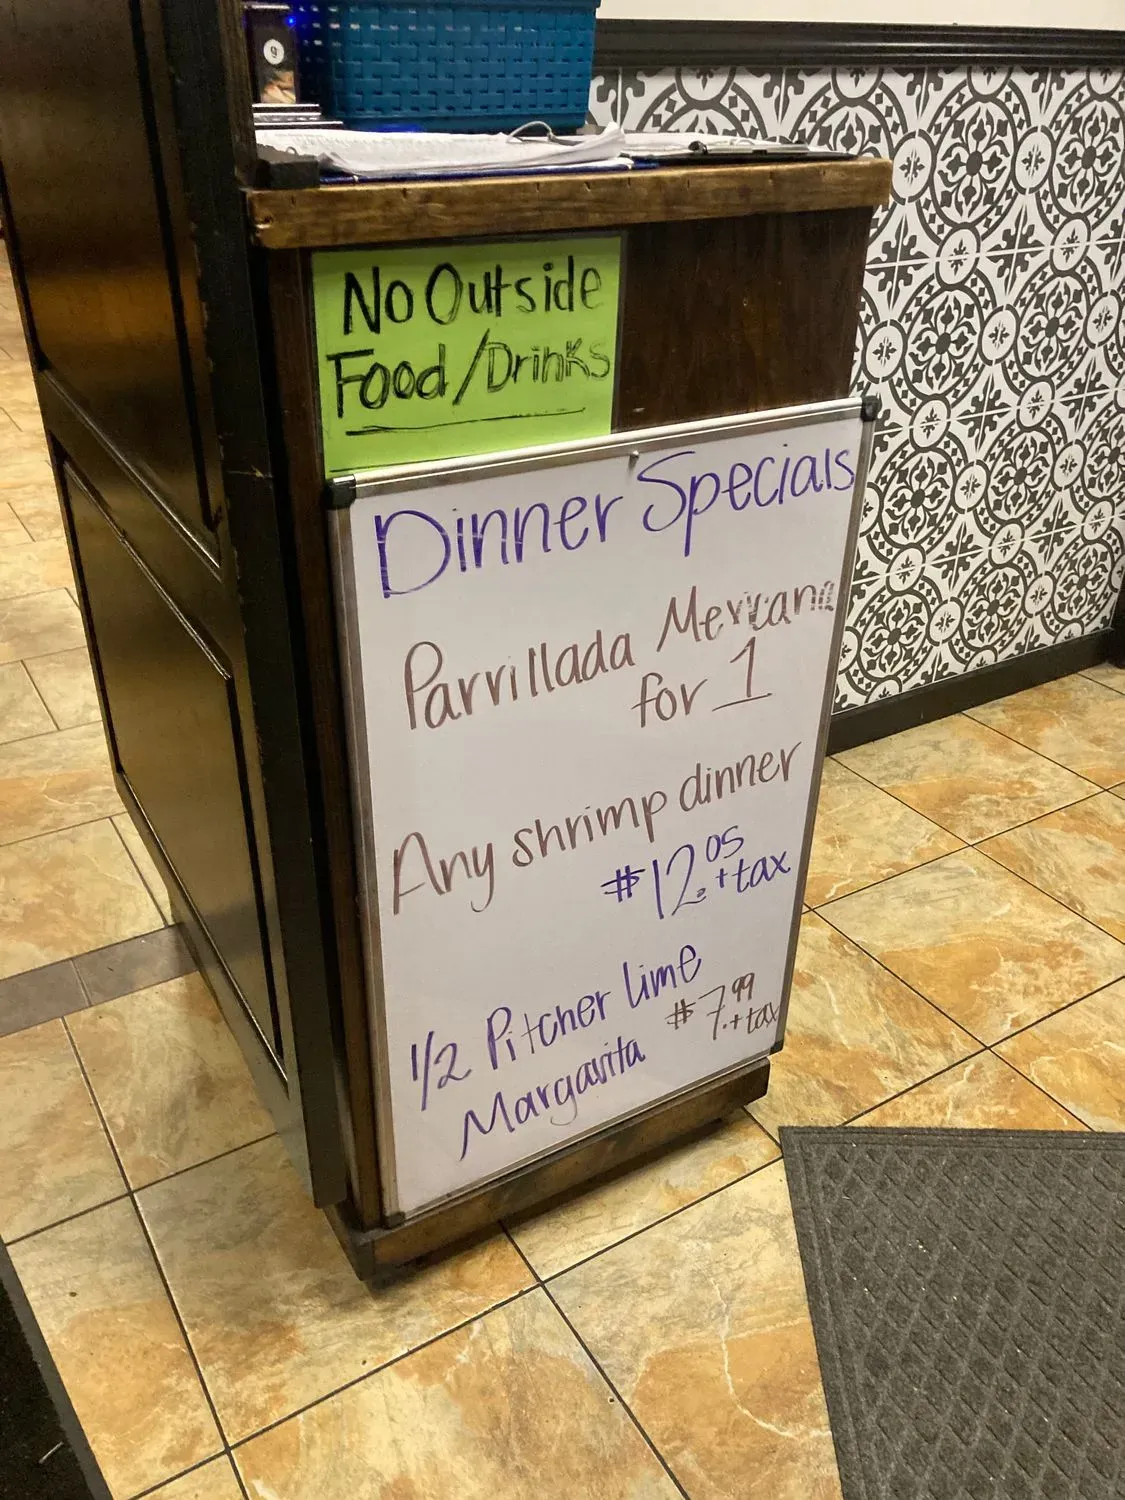 9
No Outside
Food/Drinks
Dinner Specials
Parrillada Mexicana
for 1
Any shrimp dinner
$12.05 +tax
1/2 Pitcher lime
Margarita $7.99 +tax